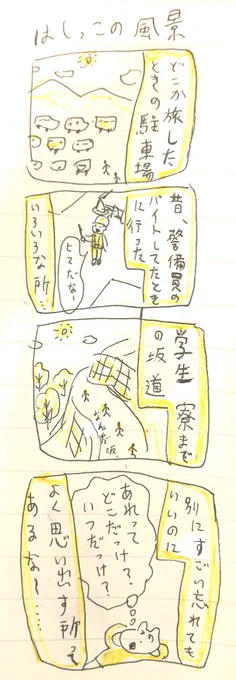 はしっこの風景
どこか旅した
ときの駐車場
昔、警備員の
バイトしてたとき
に行った
ヒマだな〜
いろいろな所…
学生寮まで
の坂道
なんだ坂
別にすごい忘れても
いいのに
あれって
どこだっけ?
いつだっけ?
よく思い出す所って
あるな〜……